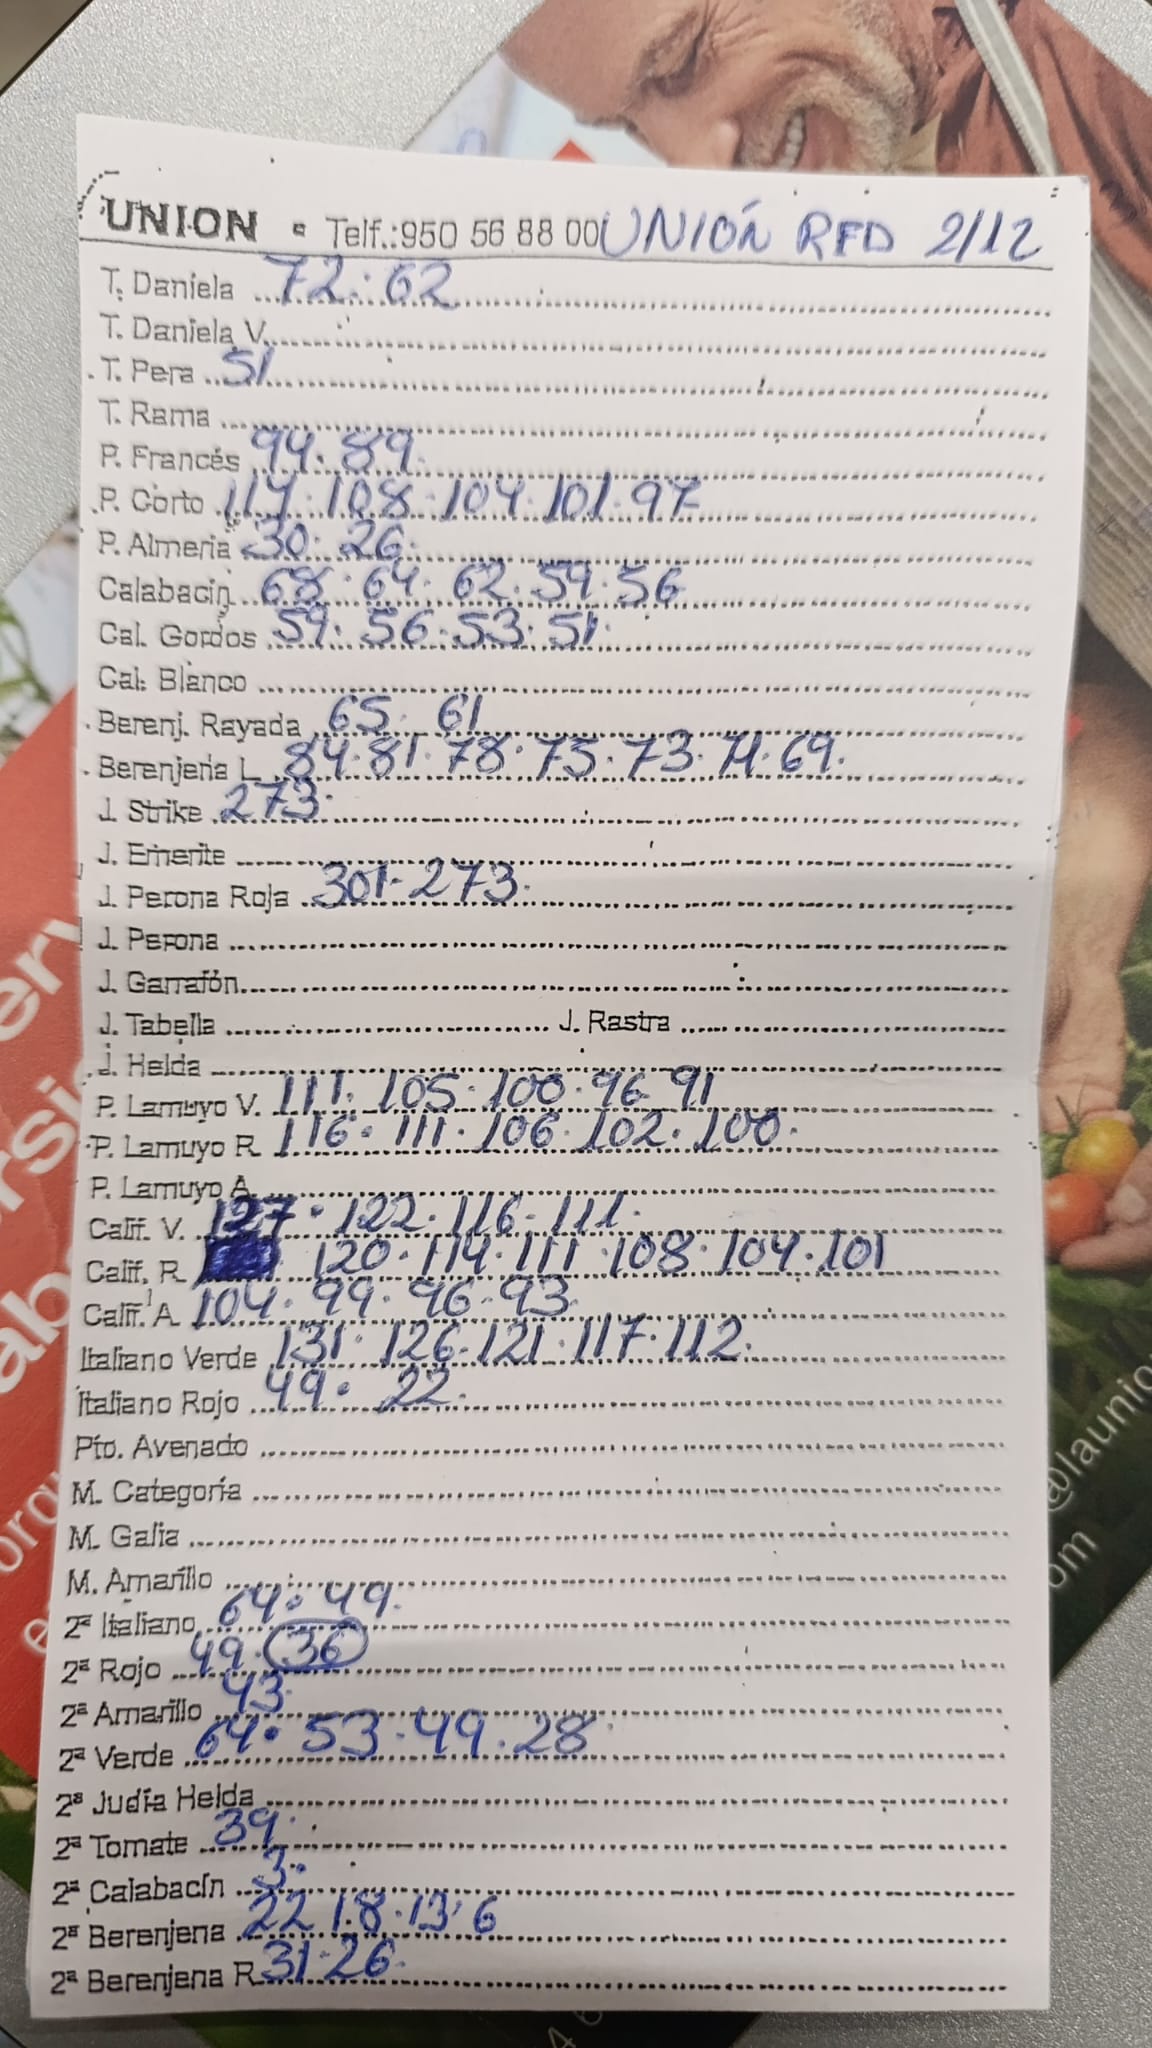 UNION - Telf.:950 56 88 00 UNIÓN RED 2/12
T. Daniela 72. 62
T. Daniela V.
T. Pera 51
T. Rama
P. Francés 94. 89.
P. Corto 114. 108. 104. 101. 97
P. Almería 30. 26.
Calabacín 68. 64. 62. 59. 56
Cal. Gordos 59. 56. 53. 51.
Cal. Blanco
Berenj. Rayada 65. 61
Berenjena L 84. 81. 78. 75. 73. 71. 69.
J. Strike 273.
J. Emerite
J. Perona Roja 301. 273.
J. Perona
J. Garrafón
J. Tabella J. Rastra
J. Helda
P. Lamuyo V. 111. 105. 100. 96. 91
P. Lamuyo R. 116. 111. 106. 102. 100.
P. Lamuyo A.
Calif. V. 127. 122. 116. 111.
Calif. R. 120. 114. 111. 108. 104. 101
Calif. A. 104. 99. 96. 93
Italiano Verde 131. 126. 121. 117. 112.
Italiano Rojo 49. 22.
Pto. Avenado
M. Categoría
M. Galia
M. Amarillo
2ª Italiano 64. 49.
2ª Rojo 49. 36
2ª Amarillo 43.
2ª Verde 64. 53. 49. 28
2ª Judía Helda
2ª Tomate 39.
2ª Calabacín 3.
2ª Berenjena 22 18. 13. 6
2ª Berenjena R 31. 26.
@launio
om